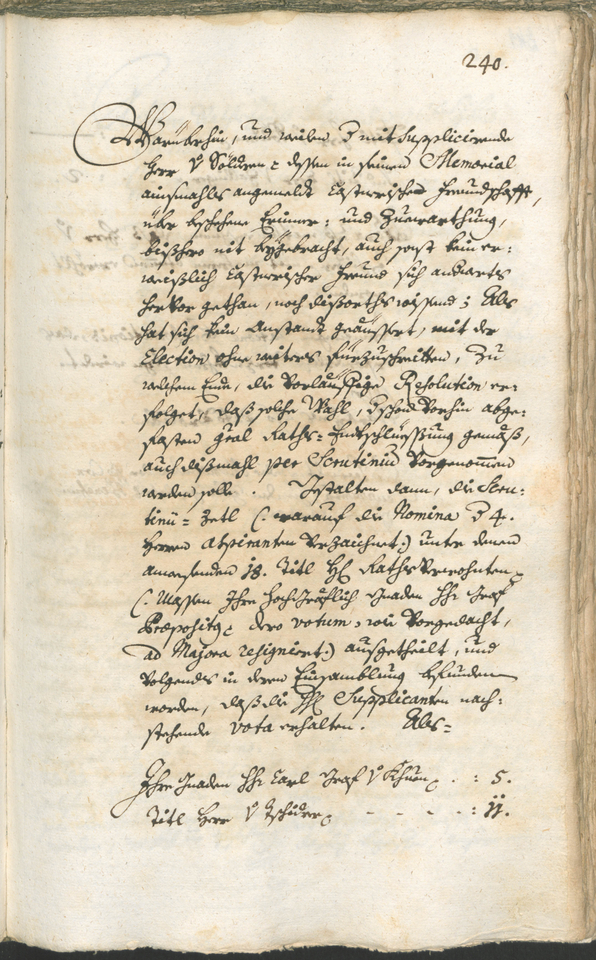 240.
Warüberhin, und weilen d mit Supplicirende
Herr v Söldern ; dessen in seinem Memorial
ainsmahls angemeldt Casterrische Freundschafft,
über beschehene Erinner: und Zuewarthung,
bißhero nit beygebracht, auch sonst kein er:
weißlich Casterrischer Freund sich anderwerts
hervor gethan, noch dißorths wissend ; Als
hat sich kein Anstandt geäussert, mit der
Election ohne weiters fürzuschreitten, Zu
welchem Ende, die Vorläuffige Resolution er:
folget, daß solche Wahl, d schon Vorhin abge:
fasten Gral Raths= Entschlüessung gemäß,
auch dißmahl per Scrutiniũ Vorgenommen
werden solle. Gestalten dann, die Scru:
tinii= Zetl (: worauf die Nomina d 4.
Herren Aspiranten Verzaichnet :) unter denen
anwesenden 18. Titl HH Raths Verwohnten
(: Massen Ihro Hochgräflich Gnaden HH: Graf
Præpositg dero votum, wie Vorgedacht,
ad Majora resigniert :) ausgetheilt, und
Volgends in deren Einsamblung befunden
worden, daß die HH Supplicanten nach:
stehende vota erhalten. Als=
Ihro Gnaden HH: Carl Graf v Khuen . : 5.
Titl Herr v Tschiderer - - - - : 11.